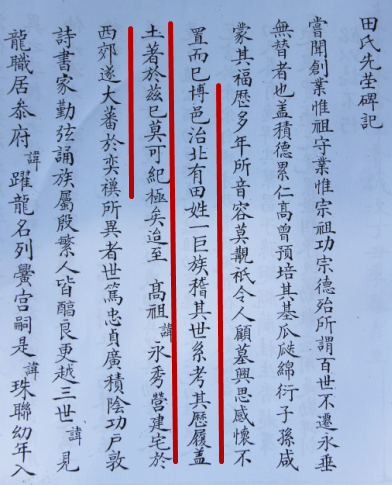 田氏先茔碑记
嘗聞創業惟祖守業惟宗祖功宗德殆所謂百世不遷永垂
無替者也盖積德累仁高曾預培其基瓜瓞綿衍子孫咸
蒙其福歷多年所音容莫覩祇令人顧墓興思感懷不
置而已博邑治北有田姓一巨族稽其世系考其歷履盖
土著於兹已莫可紀極矣迨至 高祖諱永秀營建宅於
西郊遂大番於奕禩所異者世篤忠貞廣積陰功户敦
詩書家勤弦誦族屬殷繁人皆醕良更越三世諱見
龍職居叅府諱躍龍名列黌宫嗣是諱珠聯幼年入